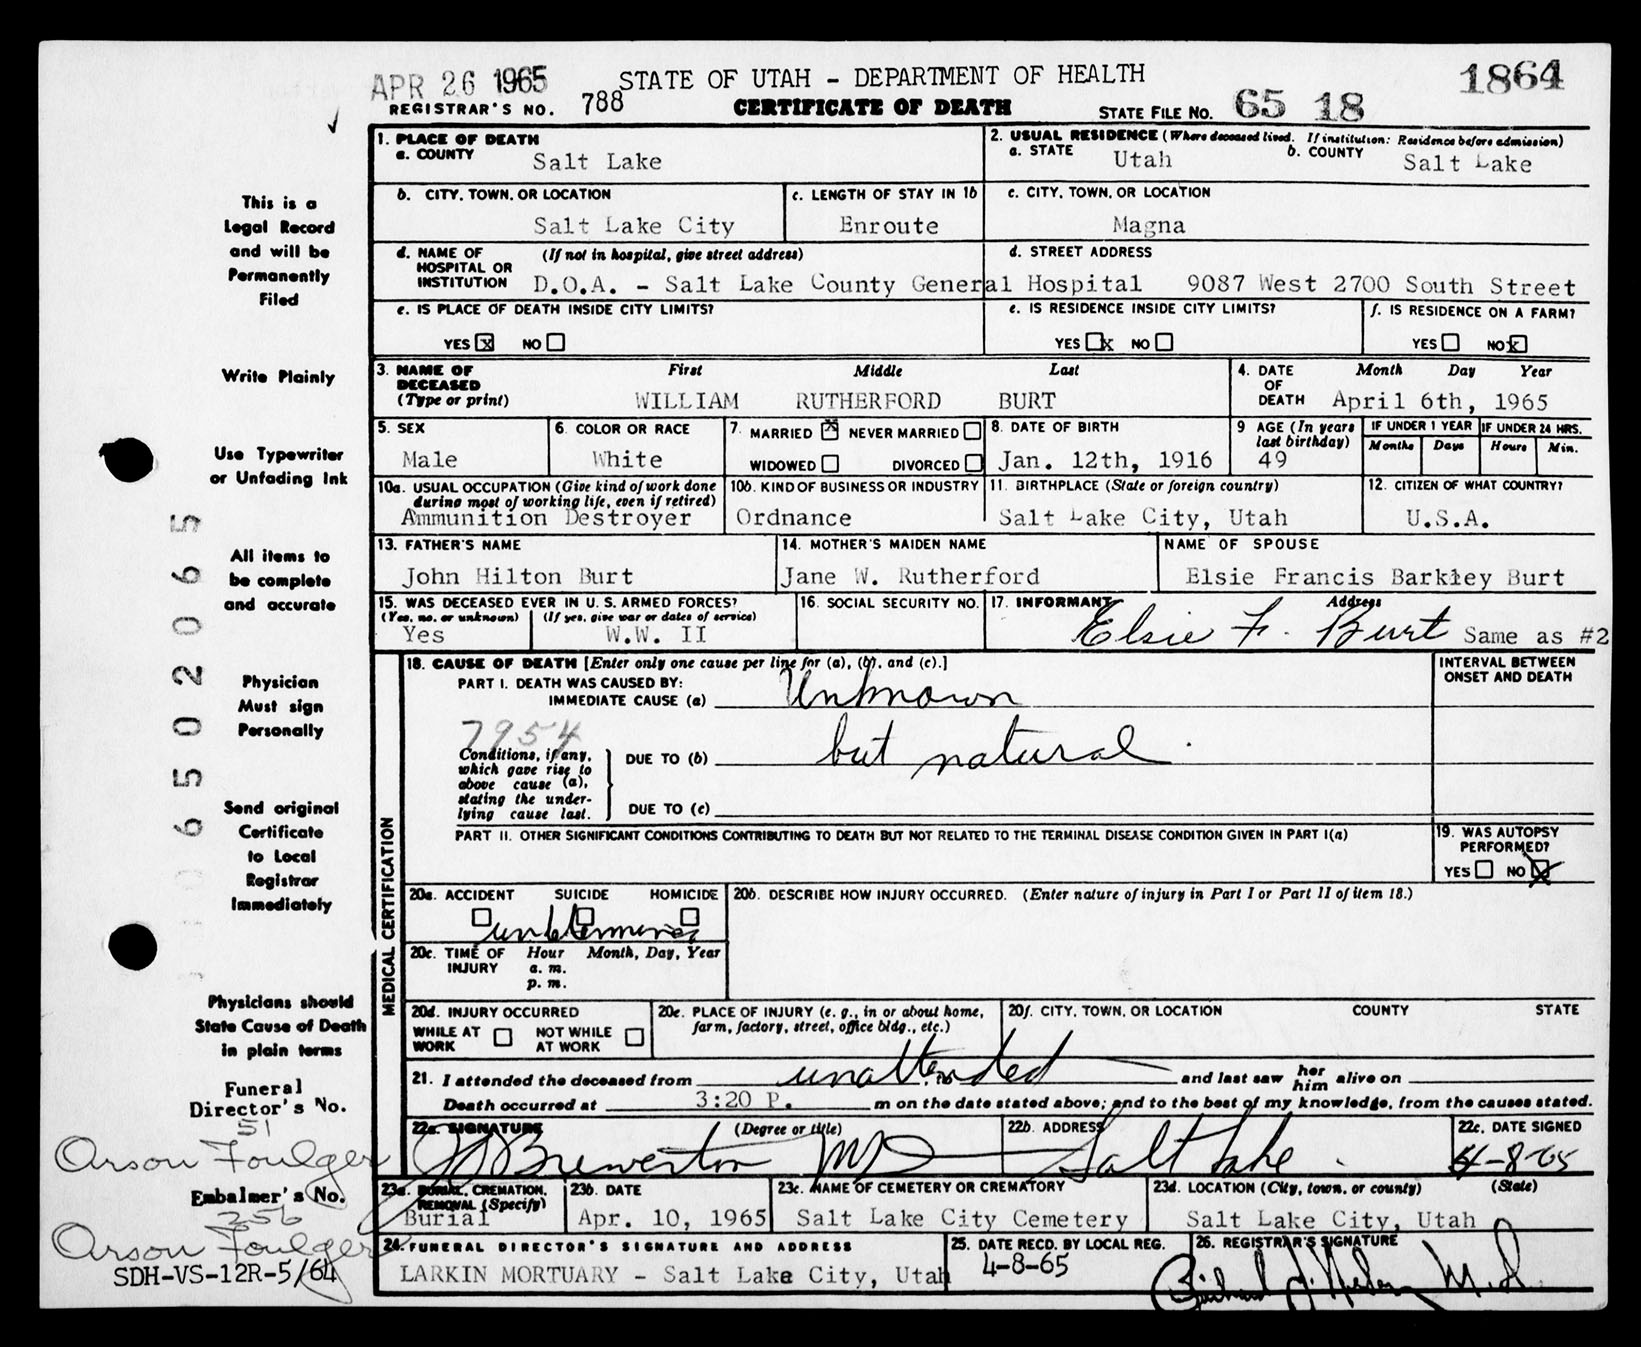 APR 26 1965 STATE OF UTAH - DEPARTMENT OF HEALTH 1864
REGISTRAR'S NO. 788 CERTIFICATE OF DEATH STATE FILE NO. 65 18
1. PLACE OF DEATH
a. COUNTY Salt Lake
2. USUAL RESIDENCE (Where deceased lived. If institution: Residence before admission)
a. STATE Utah b. COUNTY Salt Lake
b. CITY, TOWN, OR LOCATION Salt Lake City
c. LENGTH OF STAY IN 1b Enroute
c. CITY, TOWN, OR LOCATION Magna
d. NAME OF HOSPITAL OR INSTITUTION (If not in hospital, give street address)
D.O.A. - Salt Lake County General Hospital
d. STREET ADDRESS
9087 West 2700 South Street
e. IS PLACE OF DEATH INSIDE CITY LIMITS?
YES x NO
e. IS RESIDENCE INSIDE CITY LIMITS?
YES x NO
f. IS RESIDENCE ON A FARM?
YES NO x
3. NAME OF DECEASED (Type or print) First Middle Last
WILLIAM RUTHERFORD BURT
4. DATE OF DEATH Month Day Year
April 6th, 1965
5. SEX
Male
6. COLOR OR RACE
White
7. MARRIED x NEVER MARRIED
WIDOWED DIVORCED
8. DATE OF BIRTH
Jan. 12th, 1916
9 AGE (In years last birthday)
49
IF UNDER 1 YEAR
Months Days
IF UNDER 24 HRS.
Hours Min.
10a. USUAL OCCUPATION (Give kind of work done during most of working life, even if retired)
Ammunition Destroyer
10b. KIND OF BUSINESS OR INDUSTRY
Ordnance
11. BIRTHPLACE (State or foreign country)
Salt Lake City, Utah
12. CITIZEN OF WHAT COUNTRY?
U.S.A.
13. FATHER'S NAME
John Hilton Burt
14. MOTHER'S MAIDEN NAME
Jane W. Rutherford
NAME OF SPOUSE
Elsie Francis Barkley Burt
15. WAS DECEASED EVER IN U.S. ARMED FORCES?
(Yes, no, or unknown) (If yes, give war or dates of service)
Yes W.W. II
16. SOCIAL SECURITY NO.
17. INFORMANT Address
Elsie F. Burt Same as #2
MEDICAL CERTIFICATION
18. CAUSE OF DEATH [Enter only one cause per line for (a), (b), and (c).]
INTERVAL BETWEEN ONSET AND DEATH
PART I. DEATH WAS CAUSED BY:
IMMEDIATE CAUSE (a) Unknown
7954
Conditions, if any, which gave rise to above cause (a), stating the underlying cause last.
DUE TO (b) but natural.
DUE TO (c)
PART II. OTHER SIGNIFICANT CONDITIONS CONTRIBUTING TO DEATH BUT NOT RELATED TO THE TERMINAL DISEASE CONDITION GIVEN IN PART I(a)
19. WAS AUTOPSY PERFORMED?
YES NO X
20a. ACCIDENT SUICIDE HOMICIDE
undetermined
20b. DESCRIBE HOW INJURY OCCURRED. (Enter nature of injury in Part I or Part II of item 18.)
20c. TIME OF INJURY Hour Month, Day, Year
a. m.
p. m.
20d. INJURY OCCURRED
WHILE AT WORK NOT WHILE AT WORK
20e. PLACE OF INJURY (e. g., in or about home, farm, factory, street, office bldg., etc.)
20f. CITY, TOWN, OR LOCATION COUNTY STATE
21. I attended the deceased from unattended and last saw her him alive on
Death occurred at 3:20 P. m on the date stated above; and to the best of my knowledge, from the causes stated.
22a. SIGNATURE (Degree or title)
Brewerton MD
22b. ADDRESS
Salt Lake.
22c. DATE SIGNED
4-8-65
23a. BURIAL, CREMATION, REMOVAL (Specify)
Burial
23b. DATE
Apr. 10, 1965
23c. NAME OF CEMETERY OR CREMATORY
Salt Lake City Cemetery
23d. LOCATION (City, town, or county) (State)
Salt Lake City, Utah
24. FUNERAL DIRECTOR'S SIGNATURE AND ADDRESS
LARKIN MORTUARY - Salt Lake City, Utah
25. DATE RECD. BY LOCAL REG.
4-8-65
26. REGISTRAR'S SIGNATURE
M.D.
This is a
Legal Record
and will be
Permanently
Filed
Write Plainly
Use Typewriter
or Unfading Ink
All items to
be complete
and accurate
Physician
Must sign
Personally
Send original
Certificate
to Local
Registrar
Immediately
Physicians should
State Cause of Death
in plain terms
Funeral
Director's No.
51
Orson Foulger
Embalmer's No.
256
Orson Foulger
SDH-VS-12R-5/64